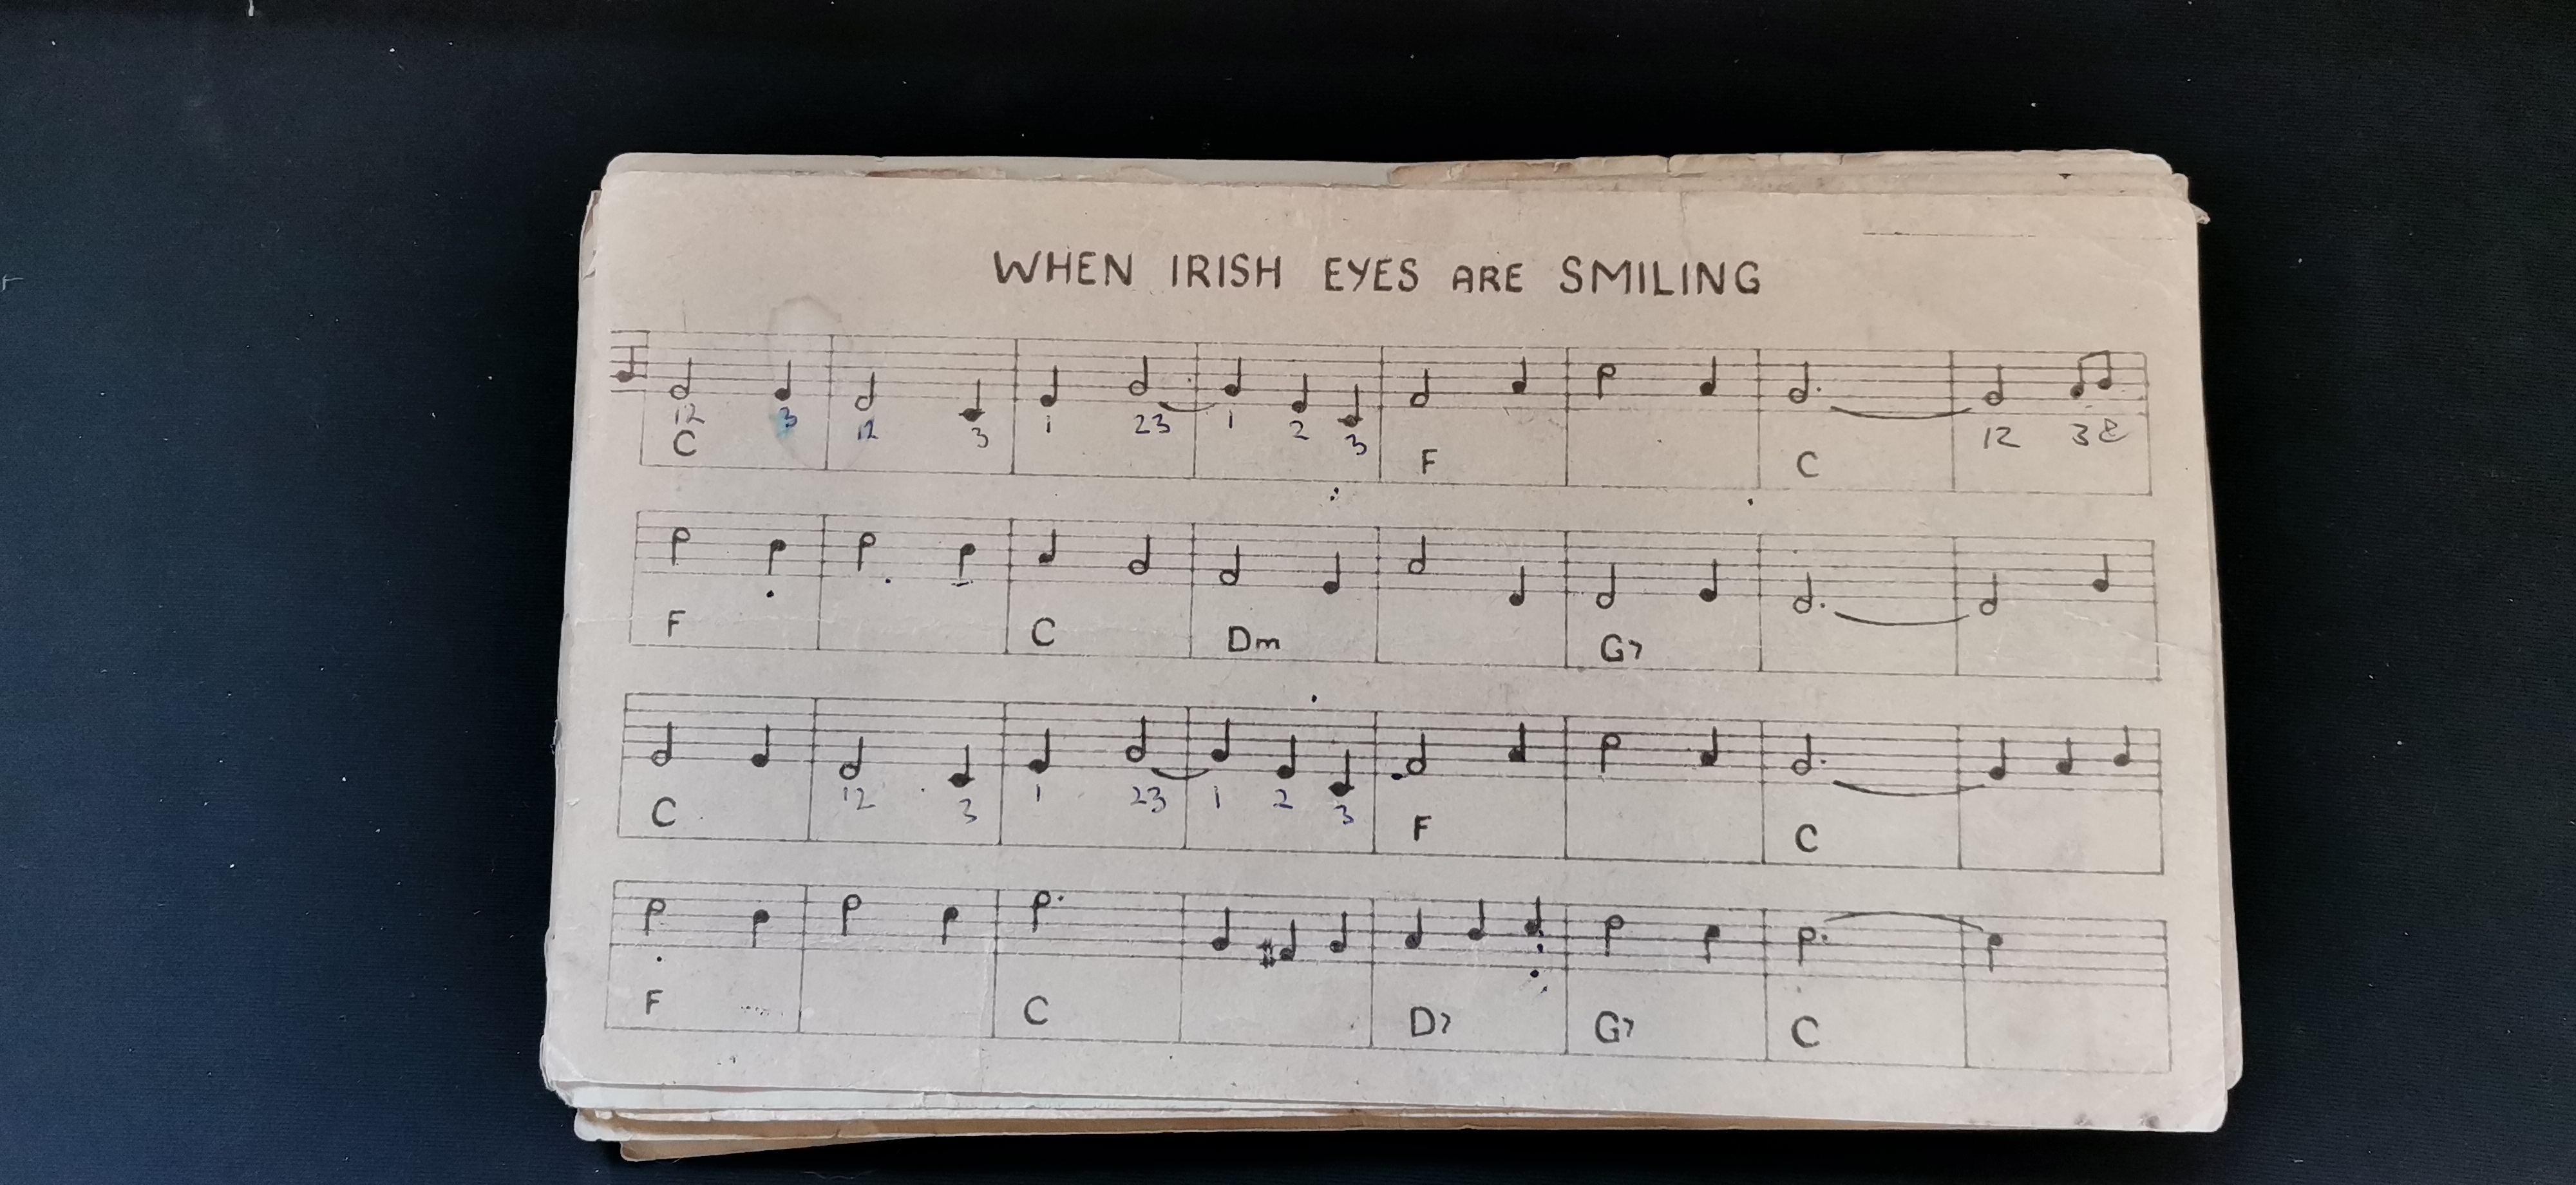 WHEN IRISH EYES ARE SMILING
12 3 12 3 1 23 1 2 3 12 3 &
C F C
F C Dm G7
12 3 1 23 1 2 3
C F C
F C D7 G7 C